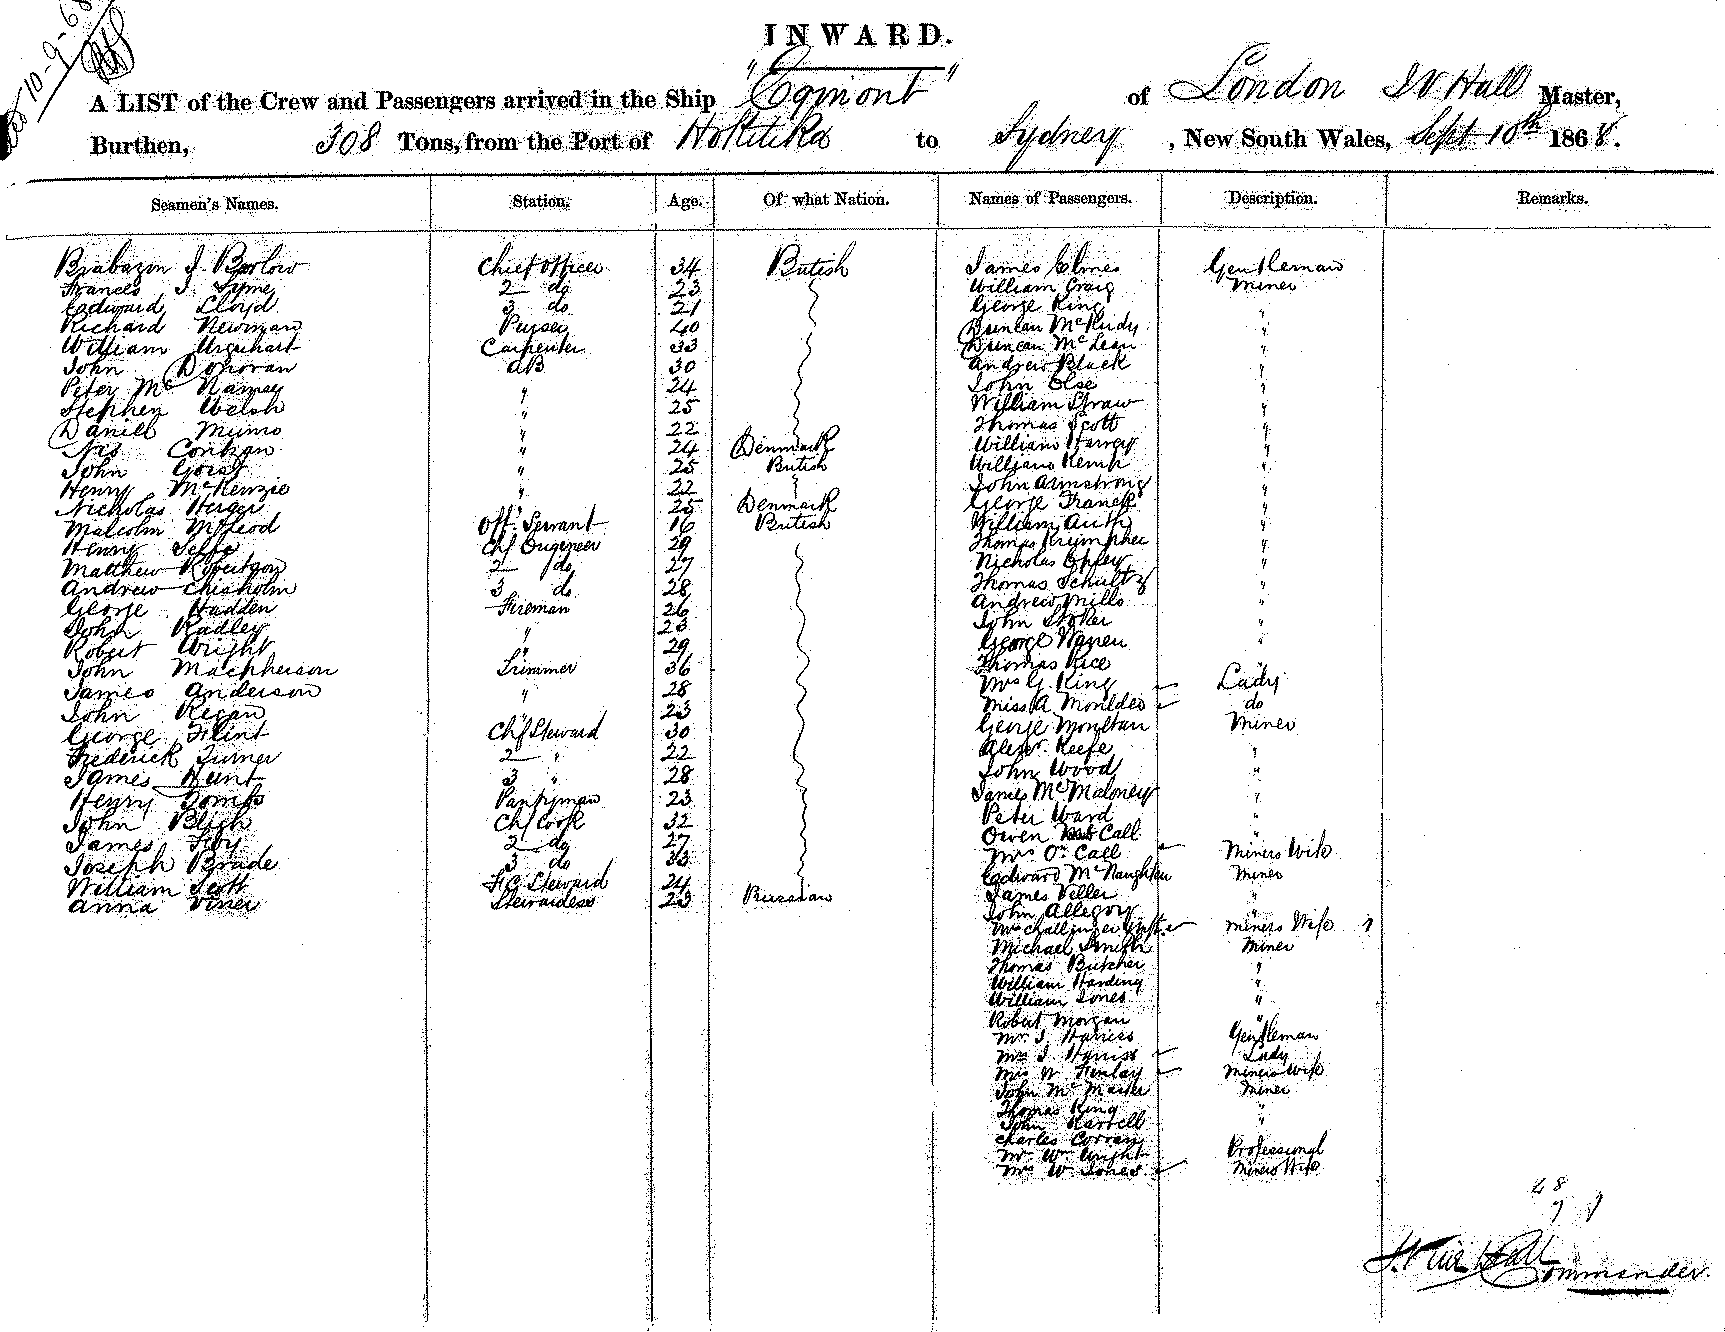 10-9-68
INWARD.
A LIST of the Crew and Passengers arrived in the Ship "Egmont" of London J V Hall Master,
Burthen, 308 Tons, from the Port of Hokitika to Sydney, New South Wales, Sept 10th 1868.
Seamen's Names. Station. Age. Of what Nation. Names of Passengers. Description. Remarks.
Brabazon J. Barlow Chief Officer 34 British James Elmes Gentleman
Frances J. Syme 2 do 23 William Craig Miner
Edward Lloyd 3 do 21 George King "
Richard Newman Purser 40 Duncan "
William Urquhart Carpenter 33 Duncan McLean "
John Donovan AB 30 Andrew Black "
Peter McNamey " 24 John Else "
Stephen Welsh " 25 William Straw "
Daniel Munro " 22 Thomas Scott "
24 Denmark William Harvey "
John " 25 British William Kemp "
Henry McKenzie " 22 John Armstrong "
Nicholas 25 Denmark George Franck "
Malcolm McLeod Off. Servant 16 British William "
Henry Chf Engineer 29 Thomas "
Matthew Robertson 2 do 27 Nicholas "
Andrew Chisholm 3 do 28 Thomas Schultz "
George Hadden Fireman 26 Andrew Mills "
John Radley " 23 John Stoker "
Robert Wright " 29 George Warren "
John Macpherson Trimmer 36 Thomas Rice "
James Anderson " 28 Mrs G. King Lady
John Regan " 23 Miss A do
George Flint Chf Steward 30 George Moultan Miner
Frederick Turner 2 " 22 Alexr. Keefe "
James Hunt 3 " 28 John Wood "
Henry Tombs Pantryman 23 James McMaloney "
John Bligh Chf Cook 32 Peter Ward "
James 2 do 27 Owen Call "
Joseph Brade 3 do 33 Mrs O. Call Miners Wife
William Scott F.C. Steward 24 Edward McNaughten Miner
Anna Viner Stewardess 23 Russian James Veller "
John Allegory "
Mrs Miners Wife
Michael Smith Miner
Thomas Butcher "
William Harding "
William Jones "
Robert Morgan "
Mr. J. Gentleman
Mrs J. Lady
Mrs W. Finlay Miners Wife
John McMaster Miner
Thomas King "
John "
Charles Corran
Mr W. Wright Professional
Mrs W. Jones Miners Wife
48
7
Hall
Commander.